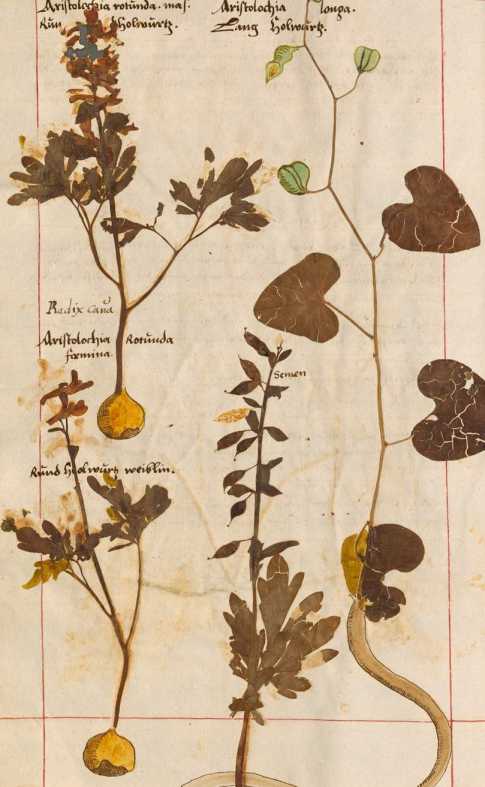 Aristolochia rotunda. mas.
Run Hholwurtz.
Aristolochia longa.
Lang Holwurtz.
Radix caua
Aristolochia Rotunda
fœmina.
Semen
Rund Hoolwurtz weiblin.